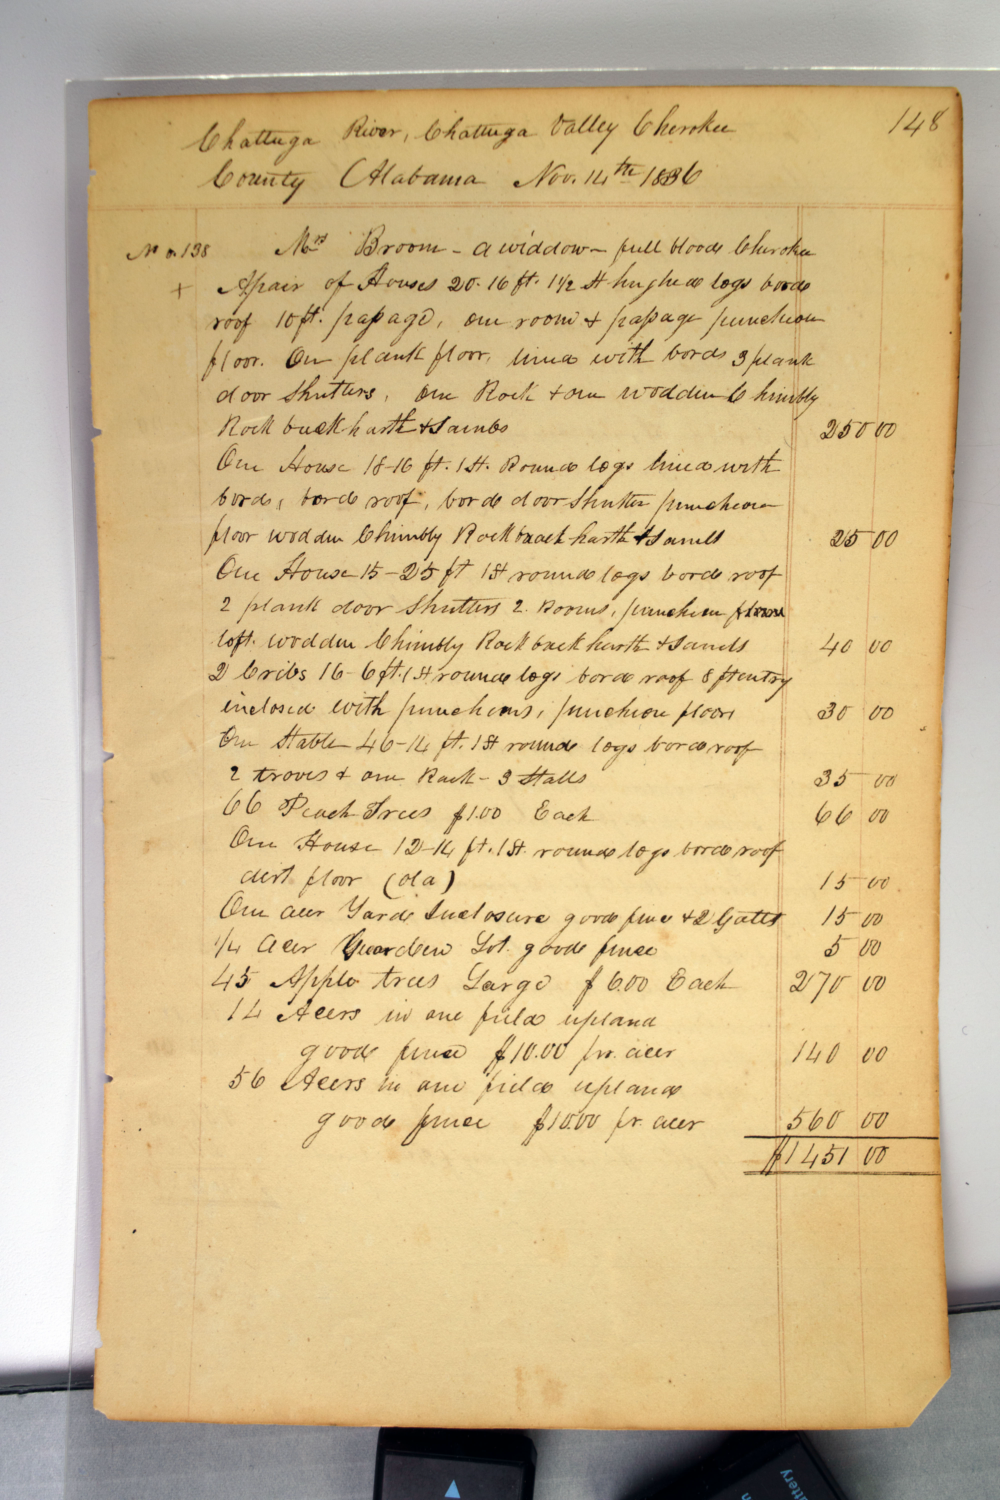 148
Chattuga River, Chattuga Valley Cherokee
County Alabama Nov. 14th 1836
No. 138 Mrs Broom - a widdow - full blood Cherokee
+ A pair of Houses 20-16 ft. 1 1/2 St hughed logs bord
roof 10 ft. passage, one room & passage puncheon
floor. One plank floor, lined with bords 3 plank
door Shutters, one Rock & one wodden Chimbly
Rock back harth & Jambs 250 00
One House 18-16 ft. 1 St. Round logs lined with
bords, bord roof, bord door Shutter puncheon
floor wodden Chimbly Rock back harth & Jambs 25 00
One House 15-25 ft 1 St round logs bord roof
2 plank door Shutters 2 Rooms, puncheon floors
loft. wodden Chimbly Rock back harth & Jambs 40 00
2 Cribs 16-6 ft. 1 St round logs bord roof 8 ft entry
inclosed with puncheons, puncheon floors 30 00
One Stable 46-14 ft. 1 St round logs bord roof
2 troves & one Rack - 3 Stalls 35 00
66 Peach Trees $1.00 Each 66 00
One House 12-14 ft. 1 St. round logs bord roof
dirt floor (old) 15 00
One acer Yard Inclosure good fince & 2 Gates 15 00
1/4 Acer Guarden Lot good fince 5 00
45 Apple trees Large $6.00 Each 270 00
14 Acers in one field upland
good fince $10.00 pr. acer 140 00
56 Acers in one field upland
good fince $10.00 pr. acer 560 00
$1451 00
ttery